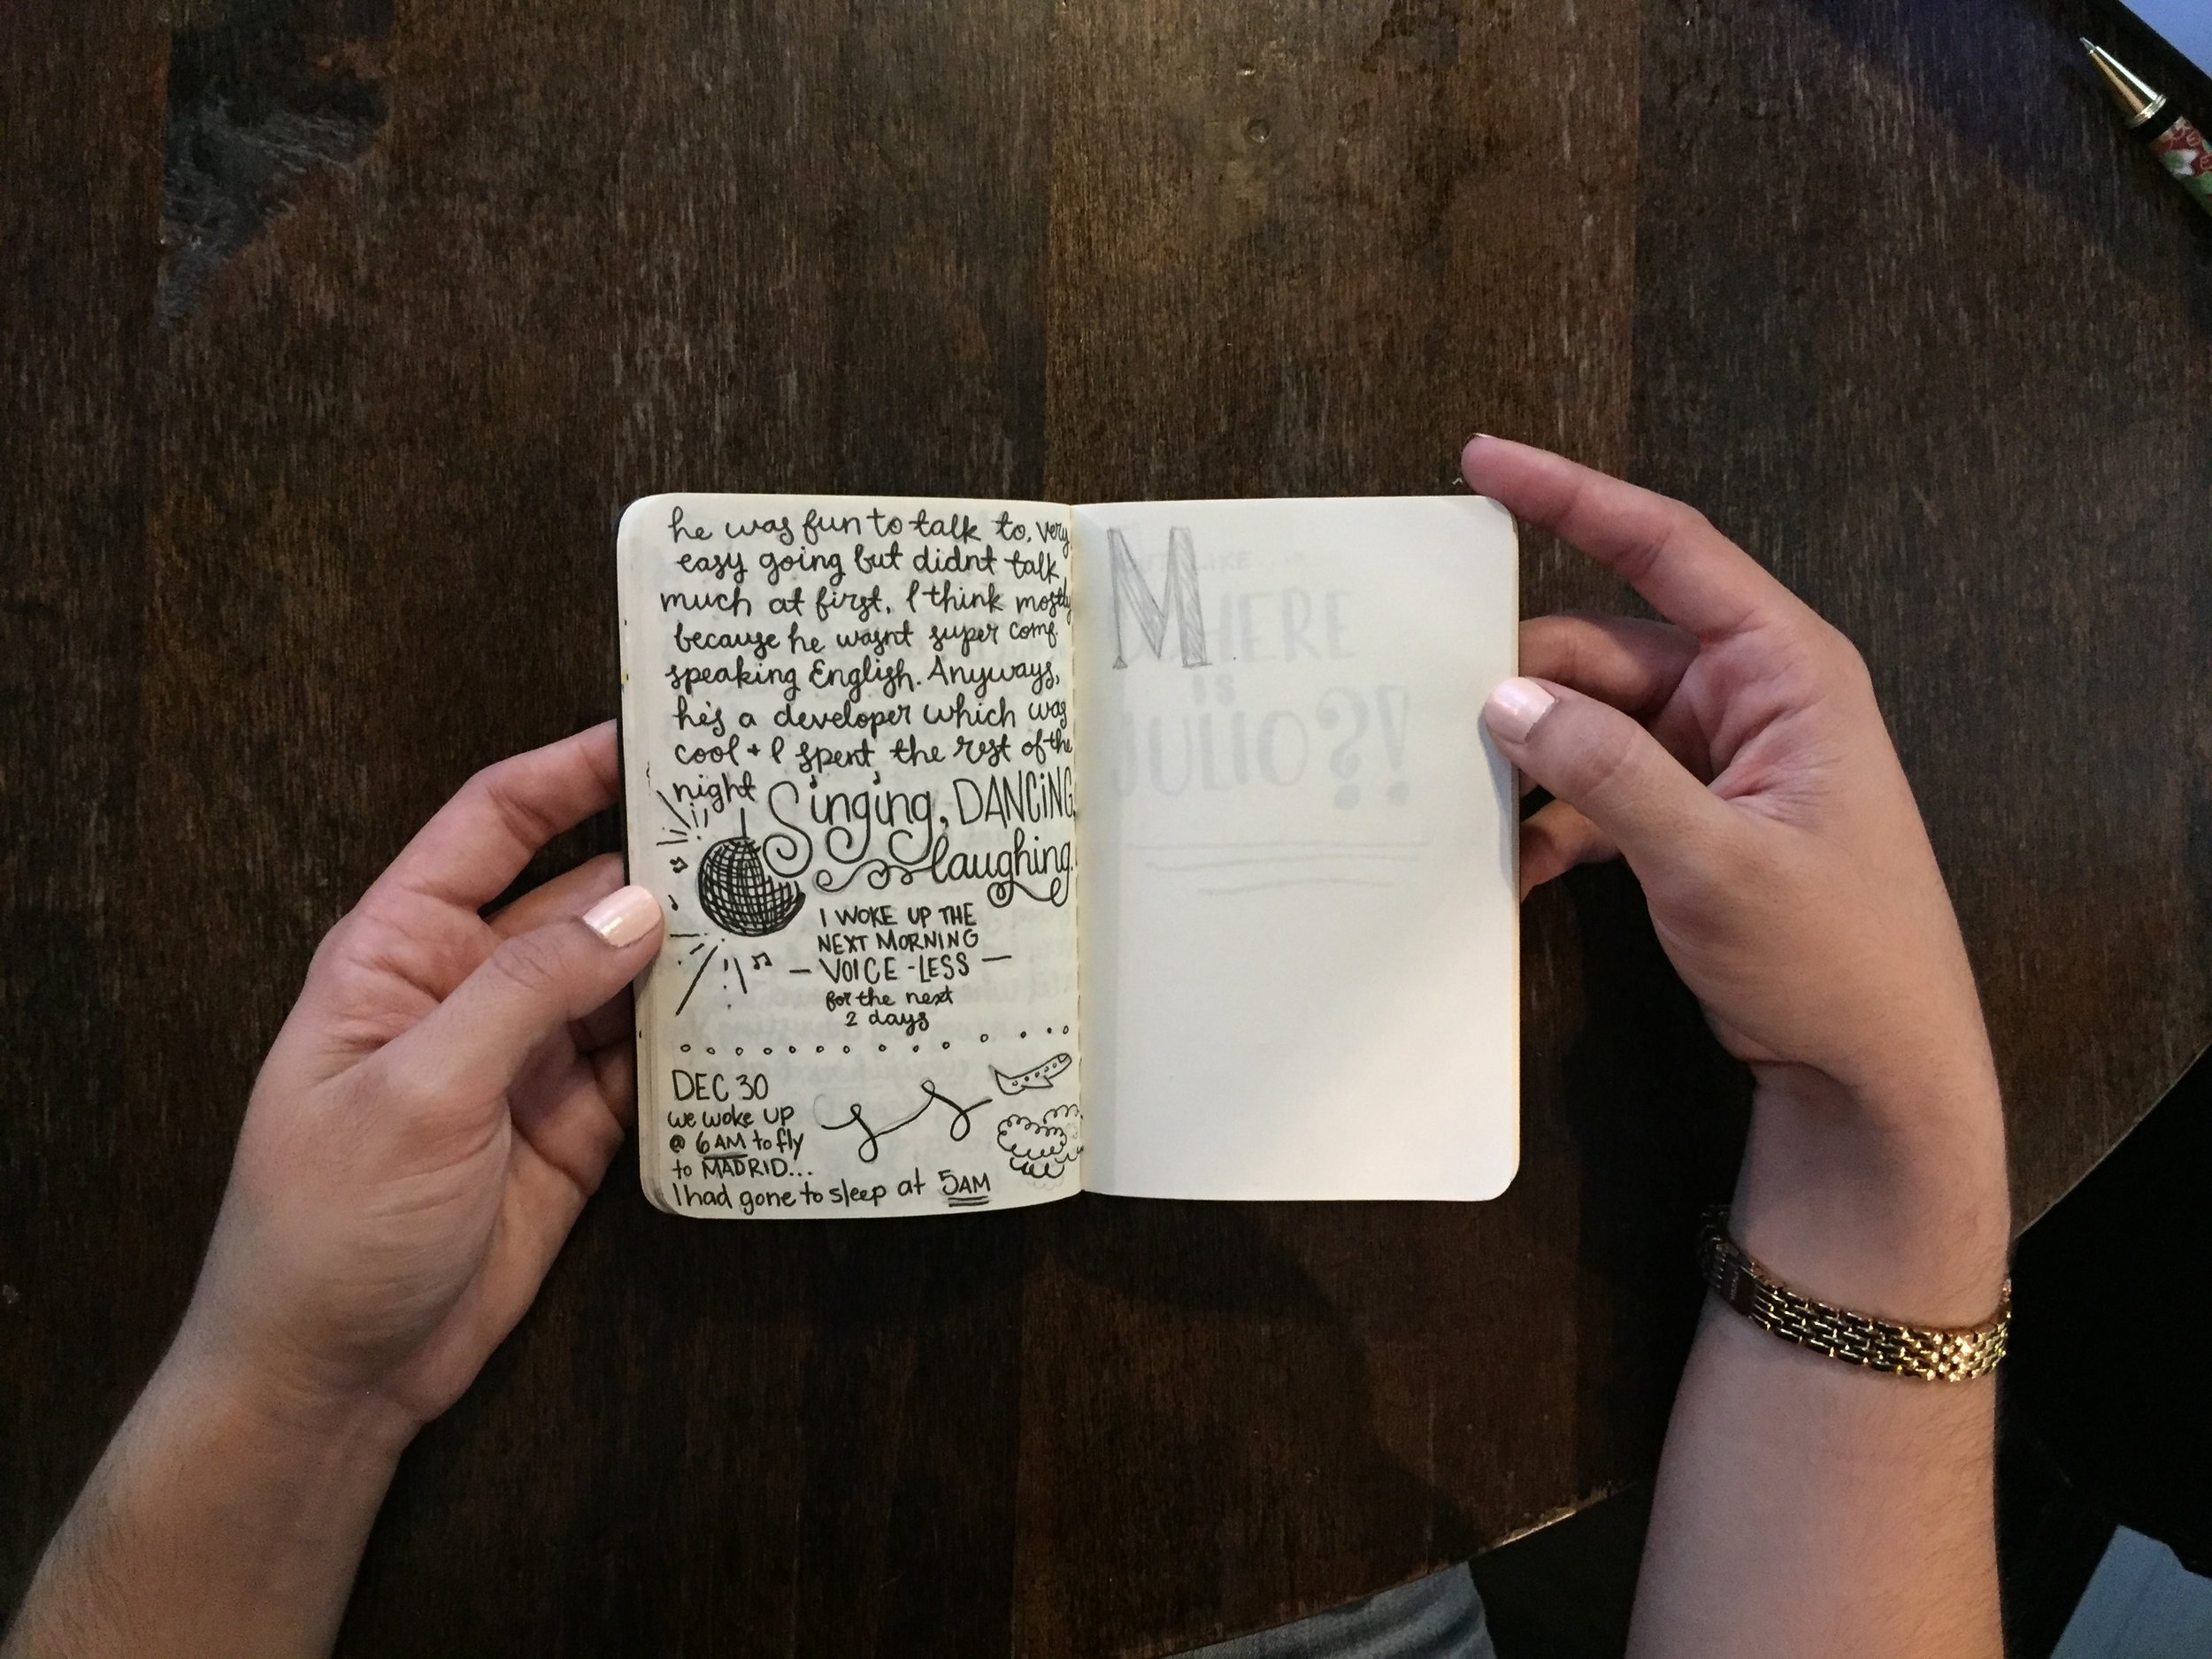 he was fun to talk to, very
easy going but didnt talk
much at first, I think mostly
because he wasnt super comf.
speaking English. Anyways,
he's a developer which was
cool + I spent the rest of the
night Singing, DANCING,
laughing.
I WOKE UP THE
NEXT MORNING
— VOICE-LESS —
for the next
2 days
DEC 30
we woke up
@ 6AM to fly
to MADRID...
I had gone to sleep at 5AM
M
LIKE
WHERE
IS
JULIO?!